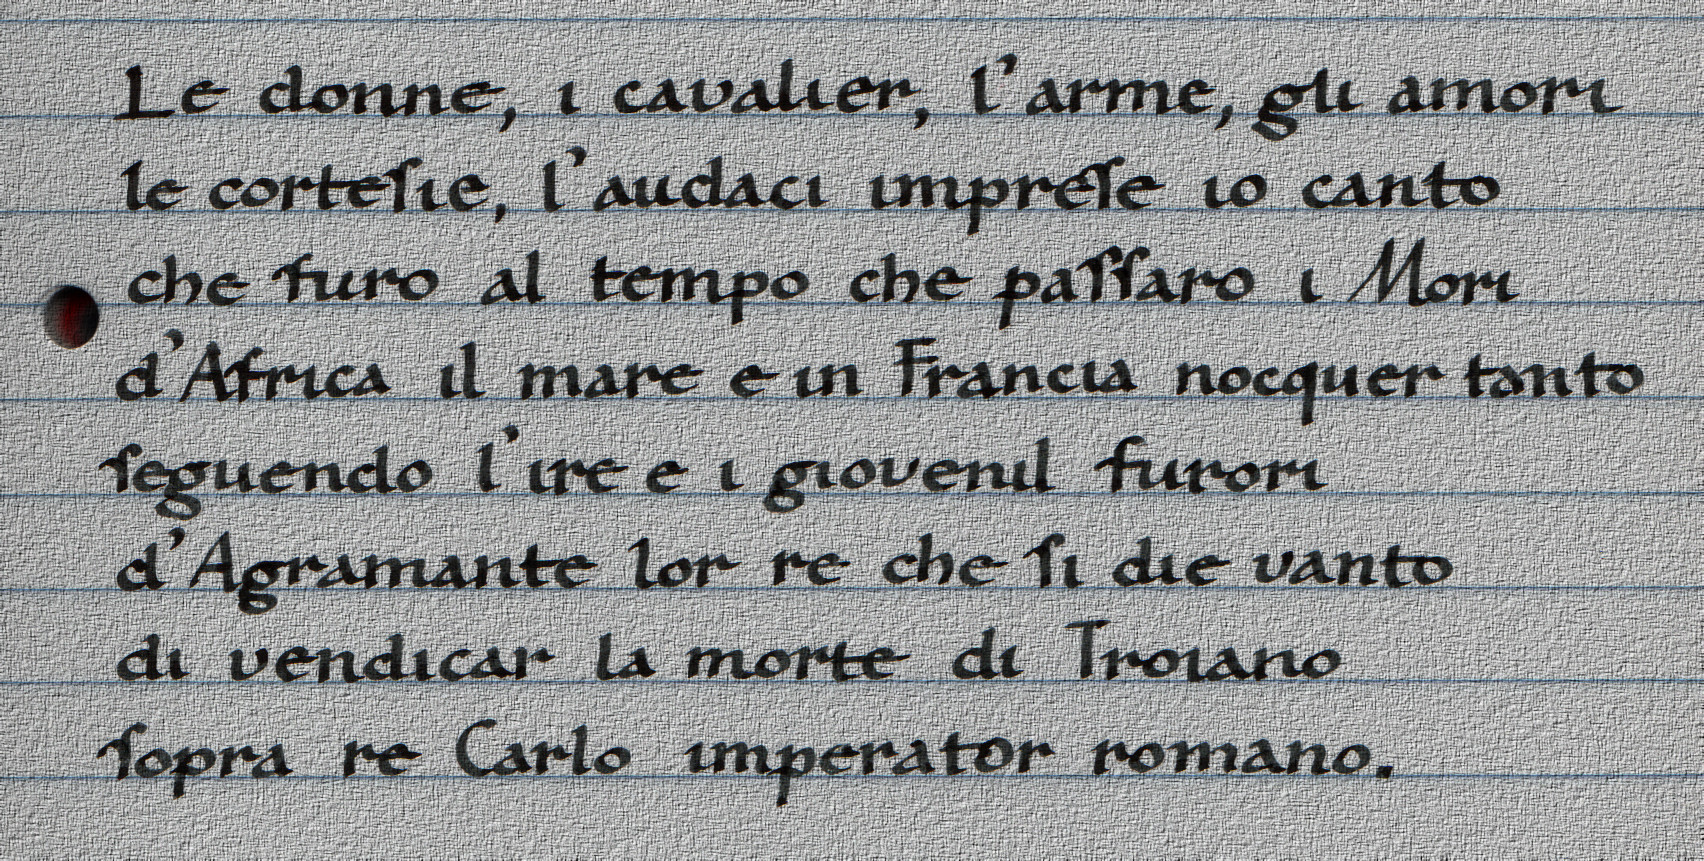 Le donne, i cavalier, l'arme, gli amori
le corteſie, l'audaci impreſe io canto
che furo al tempo che paſſaro i Mori
d'Africa il mare e in Francia nocquer tanto
ſeguendo l'ire e i giovenil furori
d'Agramante lor re che ſi die vanto
di vendicar la morte di Troiano
ſopra re Carlo imperator romano.